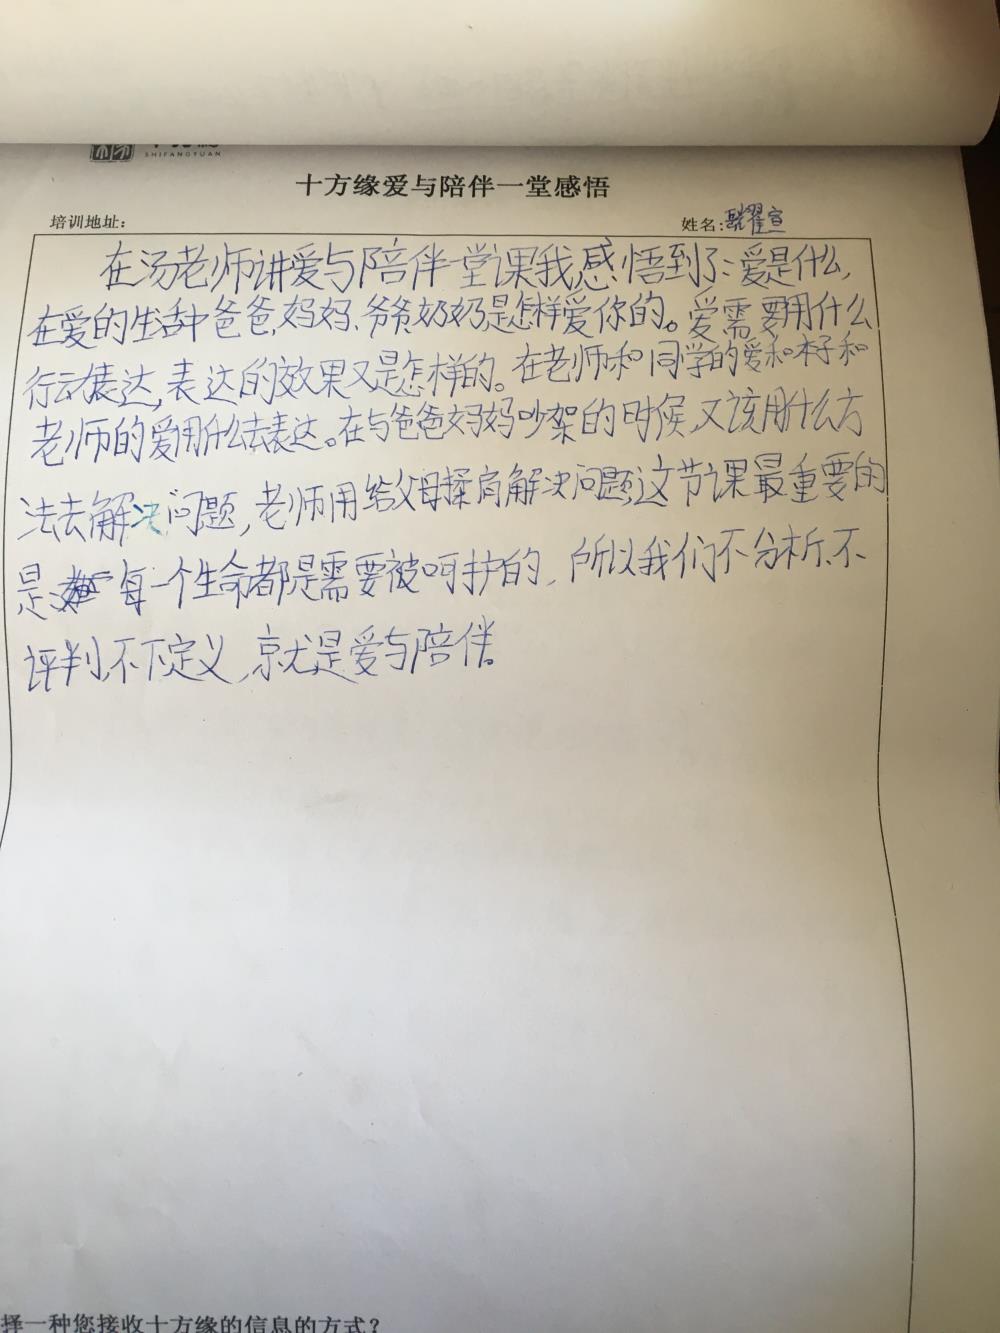 SHIFANGYUAN
十方缘爱与陪伴一堂感悟
培训地址: 姓名: 耀宣
在汤老师讲爱与陪伴一堂课我感悟到了:爱是什么,
在爱的生活中爸爸,妈妈、爷爷奶奶是怎样爱你的。爱需要用什么
行动表达,表达的效果又是怎样的。在老师和同学的爱和本子和
老师的爱用什么去表达。在与爸爸妈妈吵架的时候,又该用什么方
法去解决问题,老师用给父母揉肩解决问题,这节课最重要的
是 每一个生命都是需要被呵护的,所以我们不分析、不
评判、不下定义,就是爱与陪伴。
择一种您接收十方缘的信息的方式?